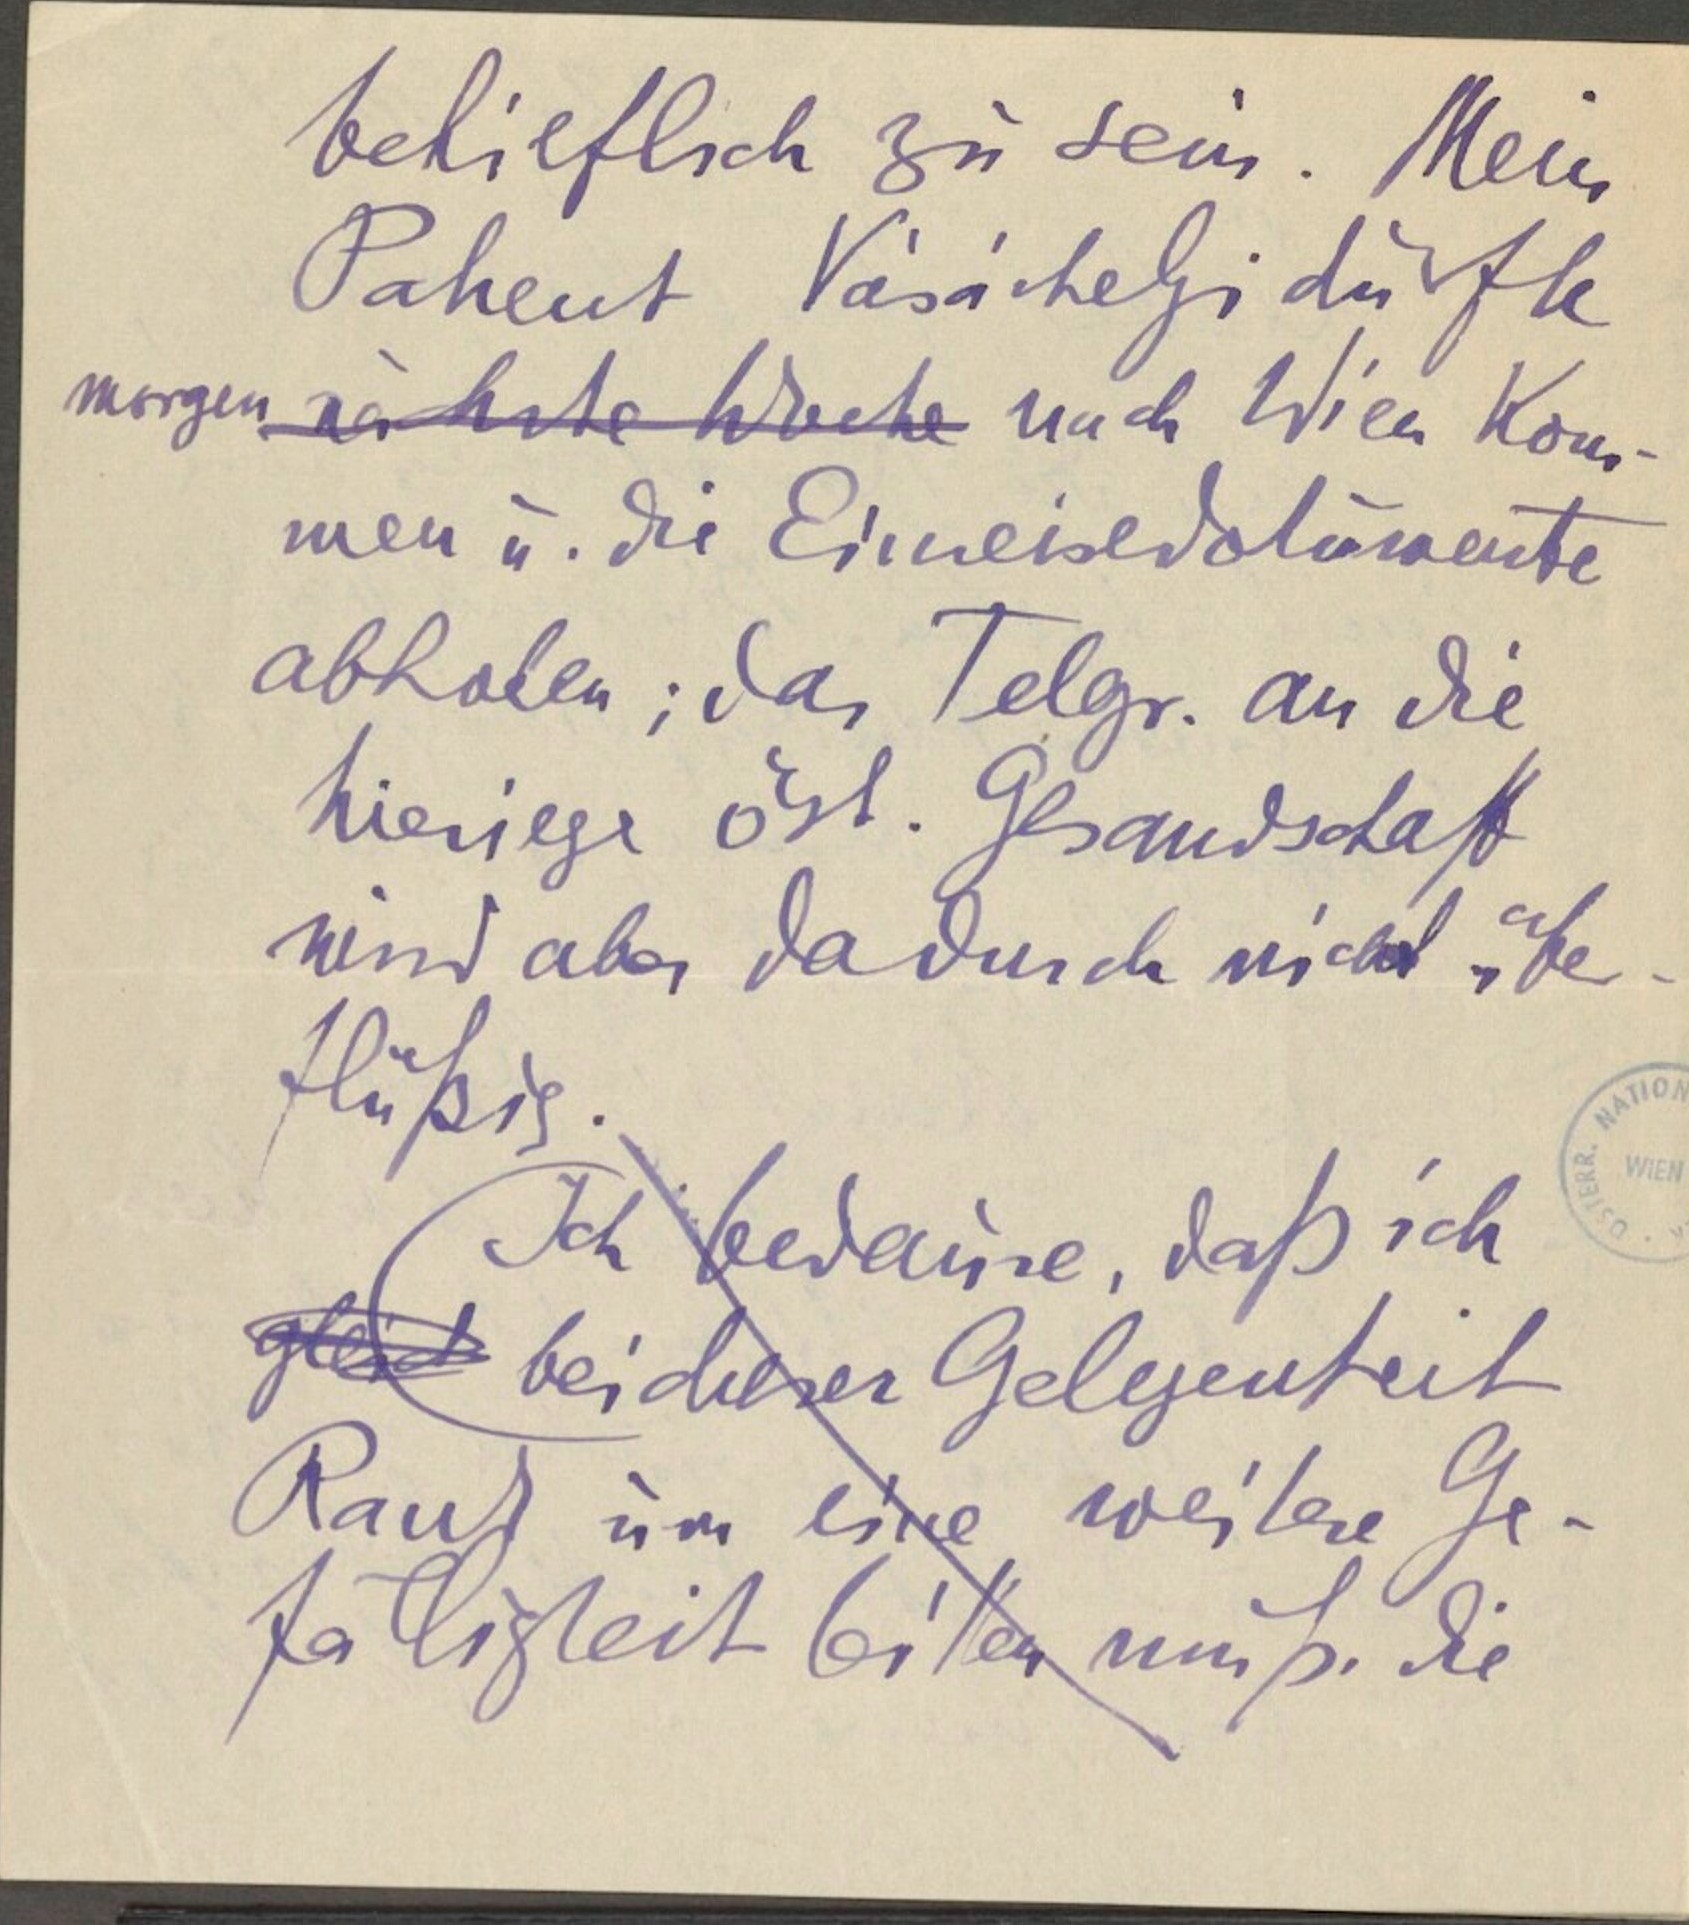 behilflich zu sein. Mein
Patient Vásárhelyi dürfte
morgen nächste Woche nach Wien kom-
men u. die Einreisedokumente
abholen; das Telgr. an die
hiesige öst. Gesandschaft
wird aber dadurch nicht über-
flüßig.
Ich bedaure, daß ich
gleich bei dieser Gelegenheit
um eine weitere Ge-
fälligkeit bitten muß. Die
ÖSTERR. NATION
WIEN